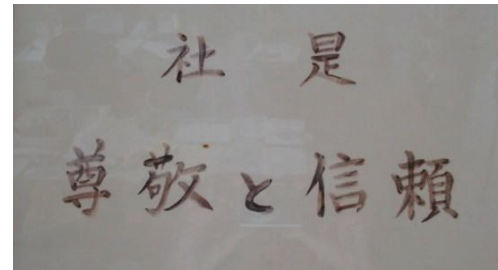 社是
尊敬と信頼